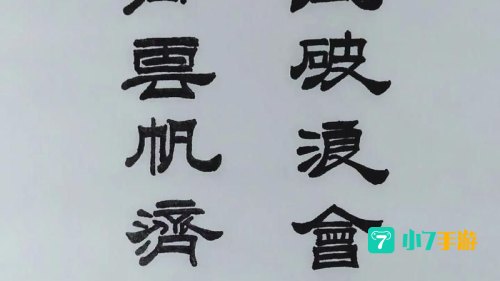 破浪會
雲帆濟
小7手游